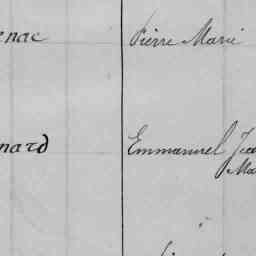 enac Pierre Marie
nard Emmanuel Jea
Ma